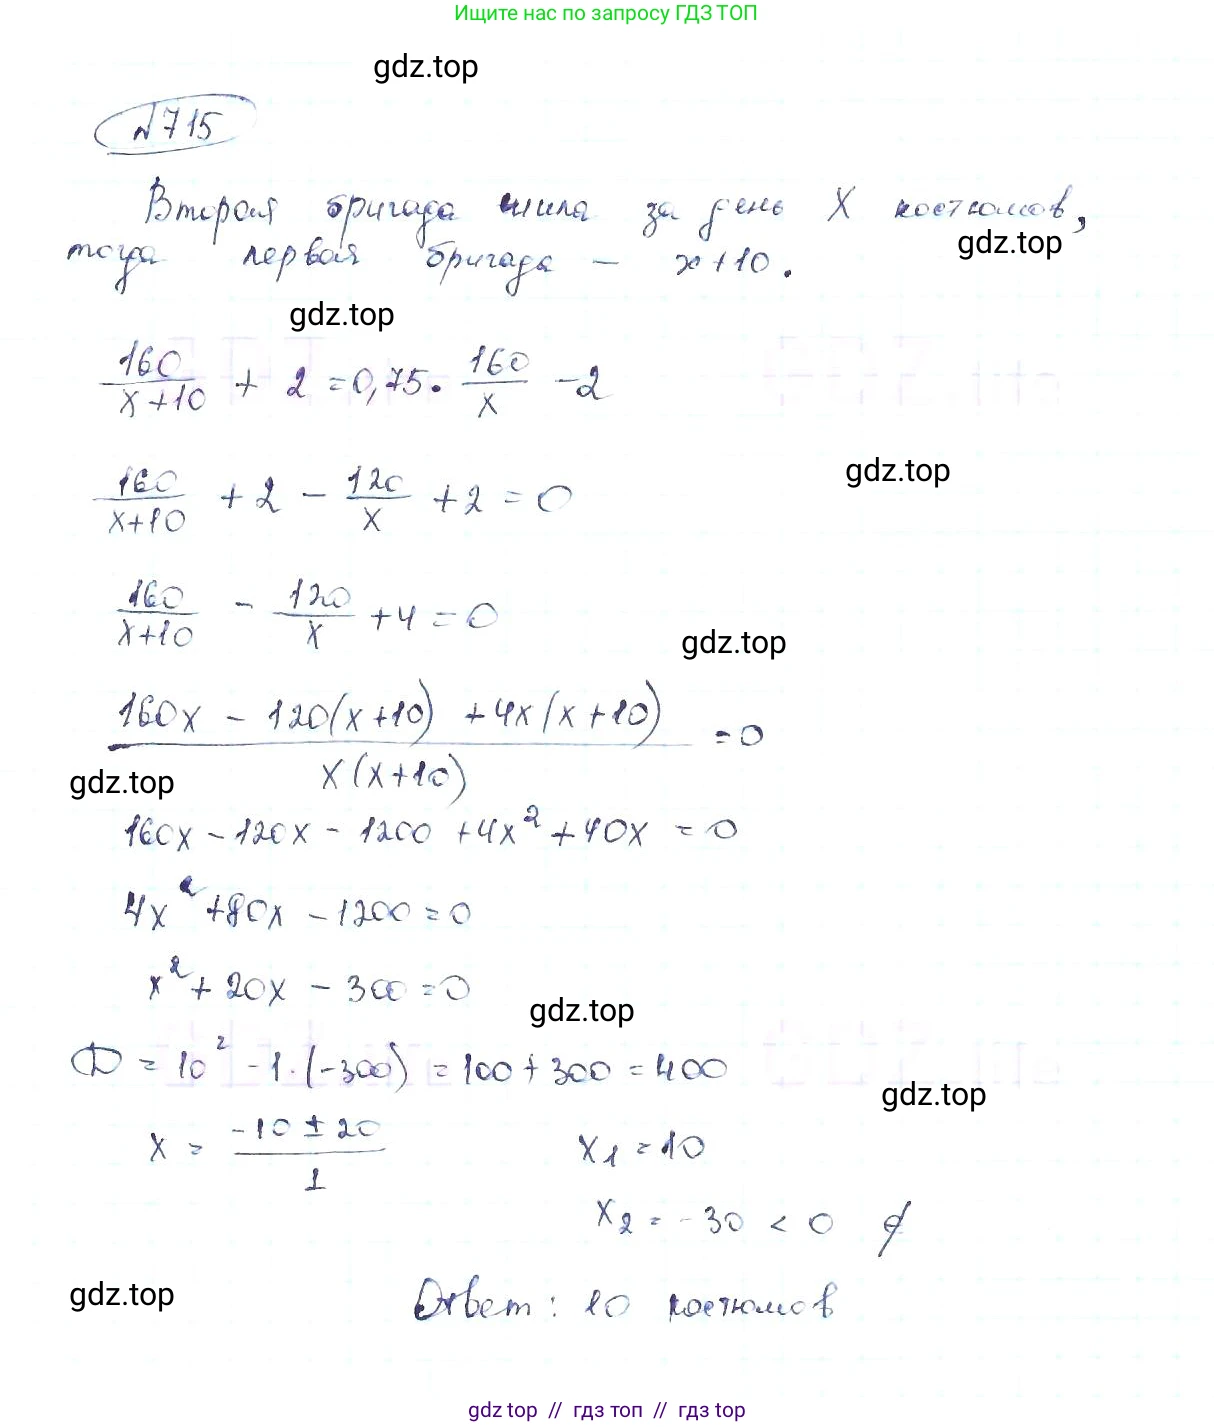 Ищите нас по запросу ГДЗ ТОП
gdz.top
№715
Вторая бригада шила за день X костюмов,
gdz.top
тогда первая бригада – x+10.
gdz.top
160/(x+10) + 2 = 0,75 · 160/x - 2
gdz.top
160/(x+10) + 2 - 120/x + 2 = 0
160/(x+10) - 120/x + 4 = 0
gdz.top
(160x - 120(x+10) + 4x(x+10))/(x(x+10)) = 0
gdz.top
160x - 120x - 1200 + 4x² + 40x = 0
4x² + 80x - 1200 = 0
x² + 20x - 300 = 0
gdz.top
D = 10² - 1·(-300) = 100 + 300 = 400
gdz.top
x = (-10 ± 20)/1 x₁ = 10
x₂ = -30 < 0
gdz.top
Ответ: 10 костюмов
gdz top // гдз топ // гдз top